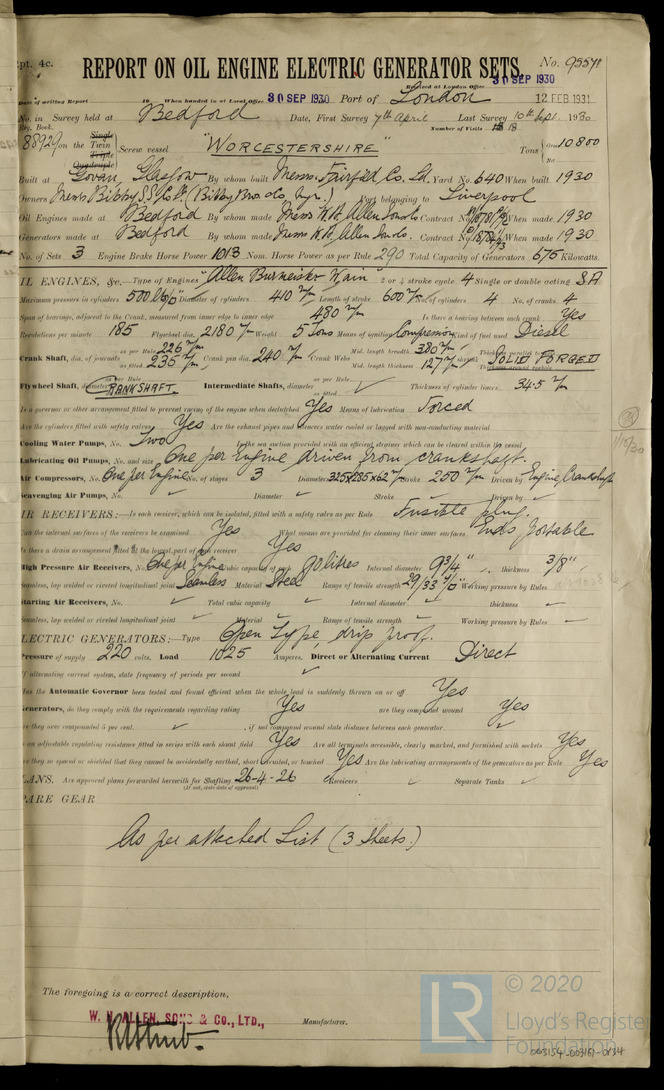 Rpt. 4c.
REPORT ON OIL ENGINE ELECTRIC GENERATOR SETS.
No. 95571
Received at London Office 30 SEP 1930
Date of writing Report 19 When handed in at Local Office 30 SEP 1930 Port of London 12 FEB 1931
No. in Survey held at Bedford Date, First Survey 7th April Last Survey 10th Sept. 1930
Reg. Book. Number of Visits 18
88929 on the Single Twin Triple Quadruple Screw vessel "WORCESTERSHIRE" Tons Gross 10800 Net
Built at Govan, Glasgow By whom built Messrs. Fairfield Co. Ld. Yard No. 640 When built 1930
Owners Messrs Bibby S.S. Co. Ld. (Bibby Bros. & Co. Mgrs.) Port belonging to Liverpool
Oil Engines made at Bedford By whom made Messrs W.H. Allen Sons & Co Contract No. When made 1930
Generators made at Bedford By whom made Messrs W.H. Allen Sons. Contract No. When made 1930
No. of Sets 3 Engine Brake Horse Power 1013 Nom. Horse Power as per Rule 290 Total Capacity of Generators 675 Kilowatts.
OIL ENGINES, &c.—Type of Engines "Allen Burmeister & Wain" 2 or 4 stroke cycle 4 Single or double acting S A
Maximum pressure in cylinders 500 lbs/□" Diameter of cylinders 410 m/m Length of stroke 600 m/m No. of cylinders 4 No. of cranks 4
Span of bearings, adjacent to the Crank, measured from inner edge to inner edge 480 m/m Is there a bearing between each crank Yes
Revolutions per minute 185 Flywheel dia. 2180 m/m Weight 5 Tons Means of ignition Compression Kind of fuel used Diesel
Crank Shaft, dia. of journals as per Rule 226 m/m as fitted 235 m/m, Crank pin dia. 240 m/m Crank Webs Mid. length breadth 380 m/m Mid. length thickness 127 m/m shrunk Thickness parallel to axis SOLID FORGED Thickness around eyehole
Flywheel Shaft, diameter as per Rule CRANKSHAFT. Intermediate Shafts, diameter as per Rule as fitted ✓ Thickness of cylinder liners 34.5 m/m
Is a governor or other arrangement fitted to prevent racing of the engine when declutched Yes Means of lubrication Forced
Are the cylinders fitted with safety valves Yes Are the exhaust pipes and silencers water cooled or lagged with non-conducting material
Cooling Water Pumps, No. Two Is the sea suction provided with an efficient strainer which can be cleared within the vessel
Lubricating Oil Pumps, No. and size One per Engine driven from crankshaft.
Air Compressors, No. One per Engine No. of stages 3 Diameters 325x285x62 m/m Stroke 250 m/m Driven by Engine Crankshaft
Scavenging Air Pumps, No. ✓ Diameter ✓ Stroke ✓ Driven by ✓
AIR RECEIVERS:—Is each receiver, which can be isolated, fitted with a safety valve as per Rule Fusible plug.
Can the internal surfaces of the receivers be examined Yes What means are provided for cleaning their inner surfaces Ends portable
Is there a drain arrangement fitted at the lowest part of each receiver Yes
High Pressure Air Receivers, No. One per Engine Cubic capacity of each 90 litres Internal diameter 9 3/4" thickness 3/8"
Seamless, lap welded or riveted longitudinal joint Seamless Material Steel Range of tensile strength 29/33 T/□" Working pressure by Rules
Starting Air Receivers, No. ✓ Total cubic capacity ✓ Internal diameter ✓ thickness ✓
Seamless, lap welded or riveted longitudinal joint ✓ Material ✓ Range of tensile strength ✓ Working pressure by Rules ✓
ELECTRIC GENERATORS:—Type Open Type drip proof.
Pressure of supply 220 volts. Load 1025 Amperes. Direct or Alternating Current Direct
If alternating current, state frequency of periods per second ✓
Has the Automatic Governor been tested and found efficient when the whole load is suddenly thrown on or off Yes
Generators, do they comply with the requirements regarding rating Yes are they compound wound Yes
are they over compounded 5 per cent. ✓, if not compound wound state distance between each generator ✓
Is an adjustable regulating resistance fitted in series with each shunt field Yes Are all terminals accessible, clearly marked, and furnished with sockets Yes
Are they so spaced or shielded that they cannot be accidentally earthed, short circuited, or touched Yes Are the lubricating arrangements of the generators as per Rule Yes
PLANS. Are approved plans forwarded herewith for Shafting 26-4-26 Receivers ✓ Separate Tanks ✓
(If not, state date of approval)
SPARE GEAR
As per attached List (3 Sheets.)
The foregoing is a correct description,
W. H. ALLEN, SONS & CO., LTD.,
Manufacturer.
© 2020
LR
Lloyd's Register
Foundation
003154-003161-0134